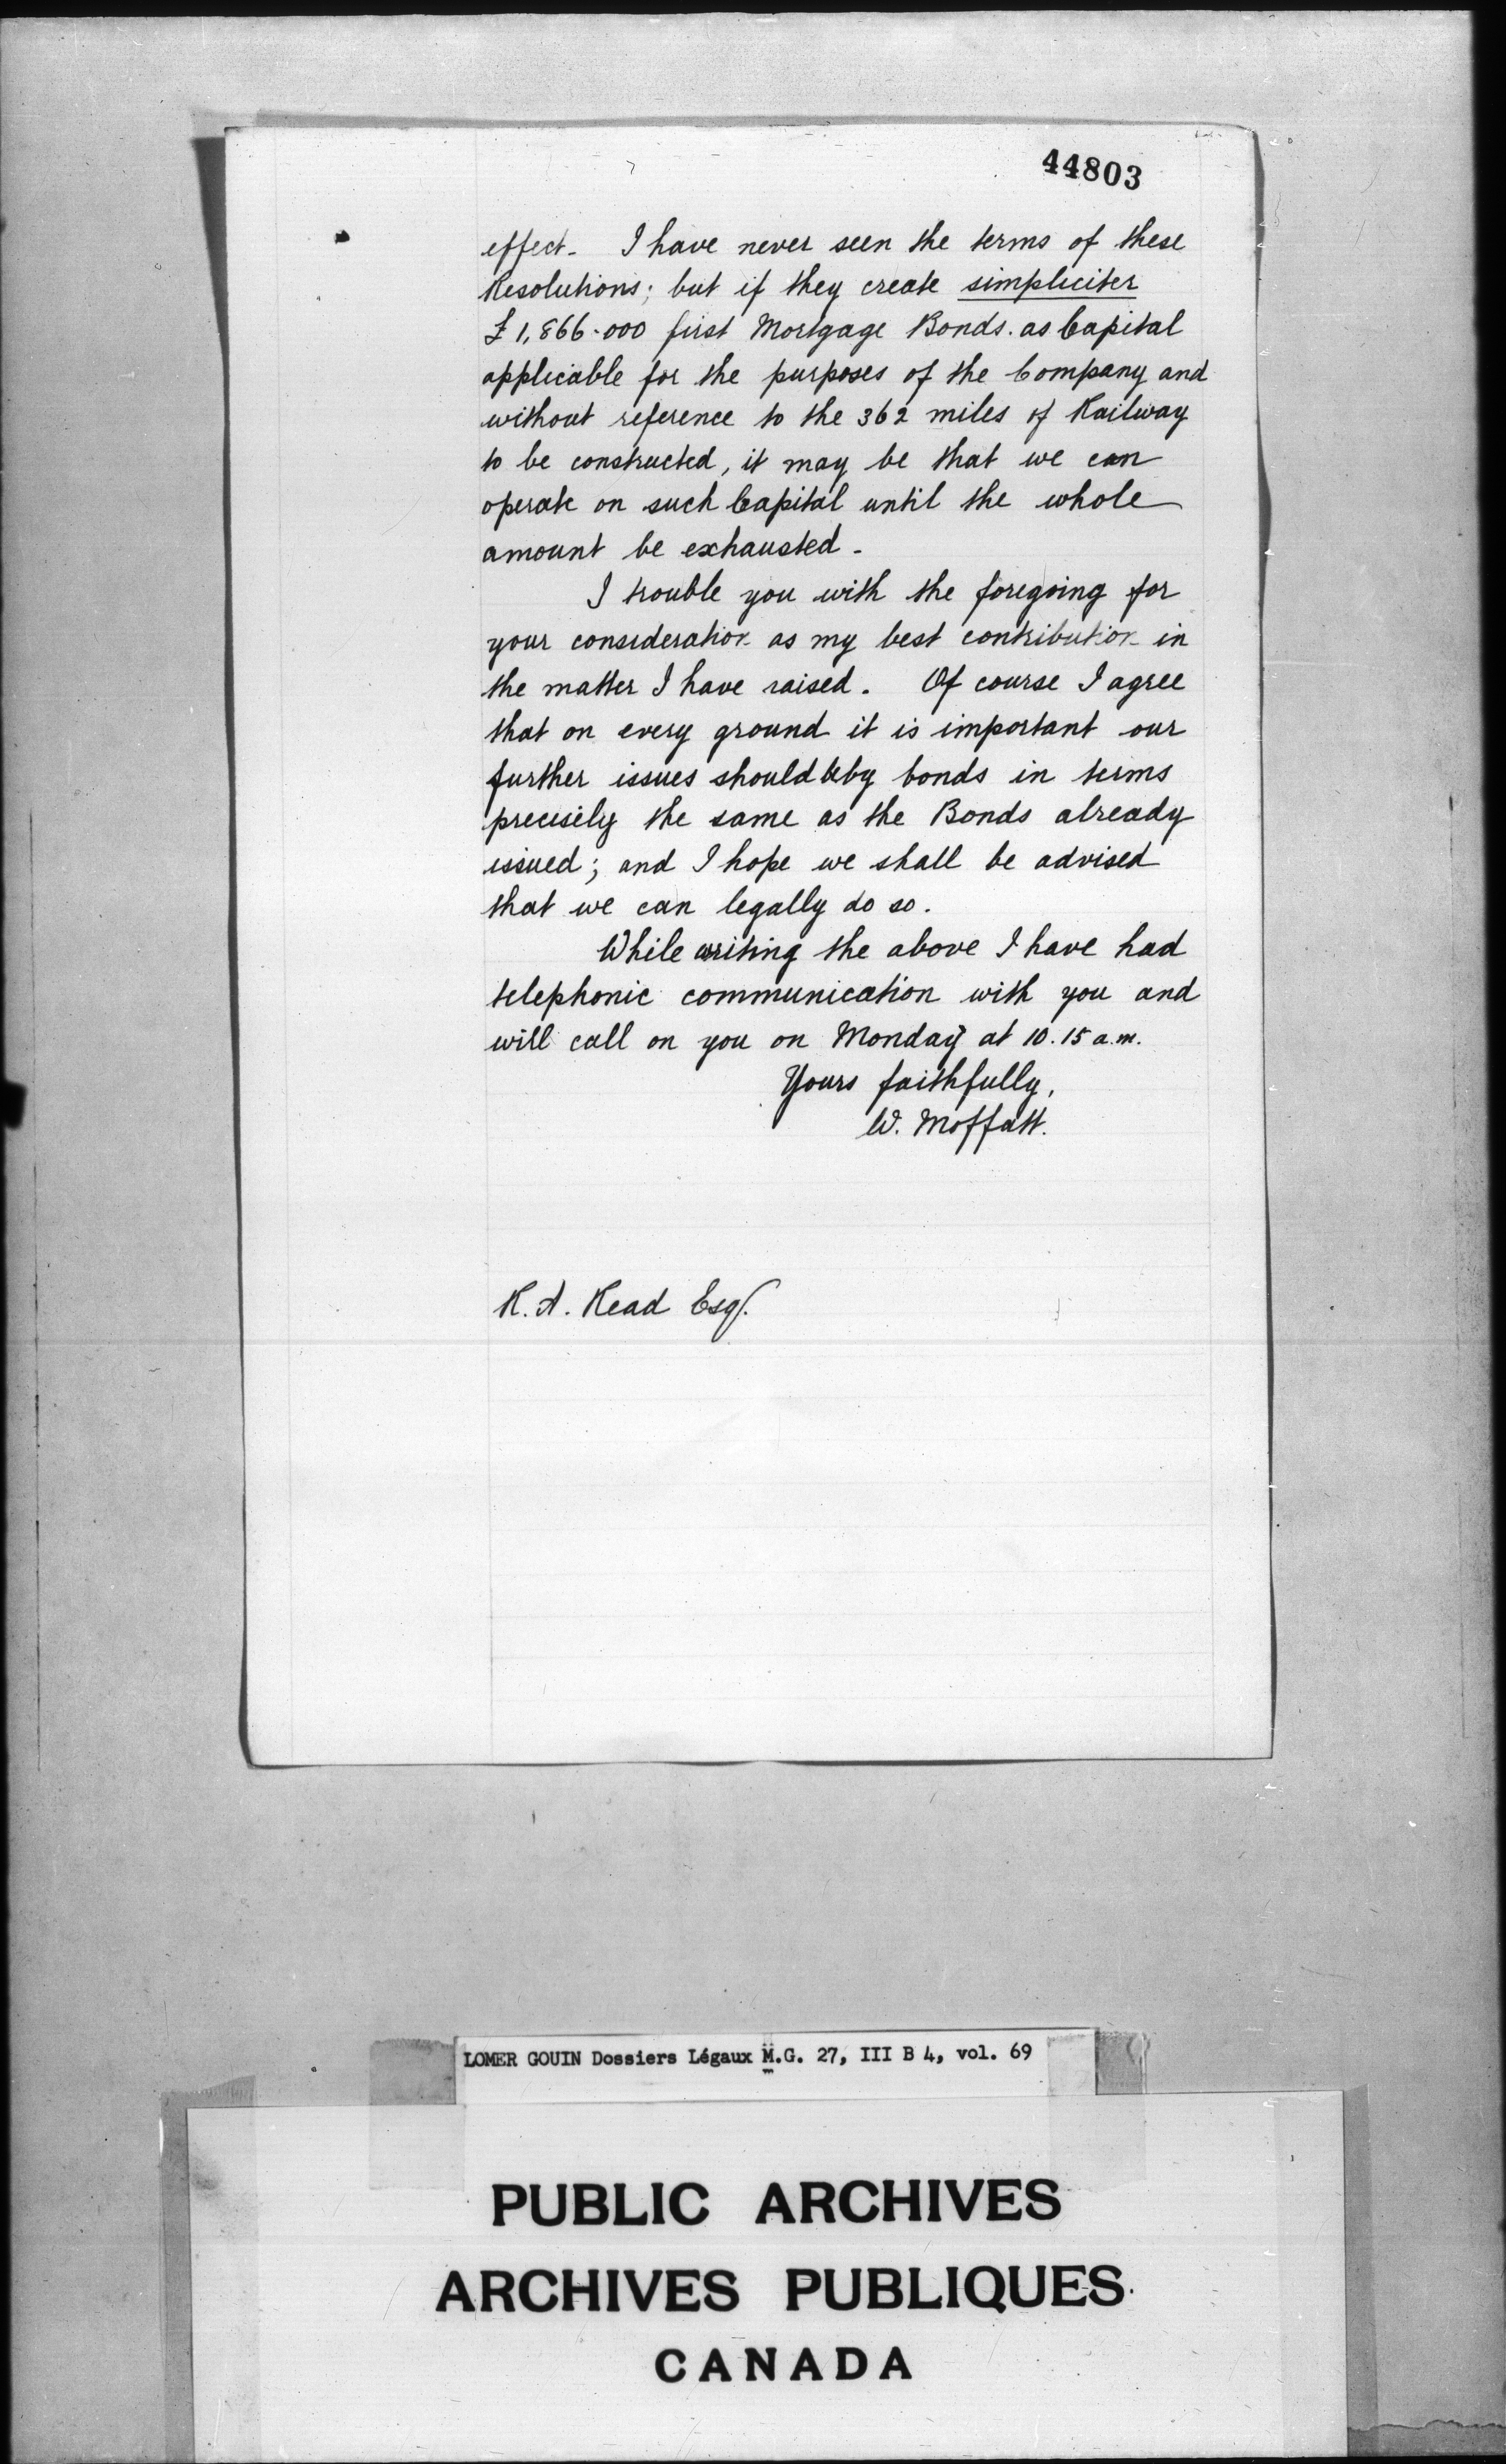 44803
effect. I have never seen the terms of these
Resolutions; but if they create simpliciter
£1,866.000 first Mortgage Bonds. as Capital
applicable for the purposes of the Company and
without reference to the 362 miles of Railway
to be constructed, it may be that we can
operate on such Capital until the whole
amount be exhausted.
I trouble you with the foregoing for
your consideration as my best contribution in
the matter I have raised. Of course I agree
that on every ground it is important our
further issues should be by bonds in terms
precisely the same as the Bonds already
issued; and I hope we shall be advised
that we can legally do so.
While writing the above I have had
telephonic communication with you and
will call on you on Monday at 10.15 a.m.
Yours faithfully,
W. Moffatt.
R. A. Read Esq.
LOMER GOUIN Dossiers Légaux M.G. 27, III B 4, vol. 69
PUBLIC ARCHIVES
ARCHIVES PUBLIQUES
CANADA